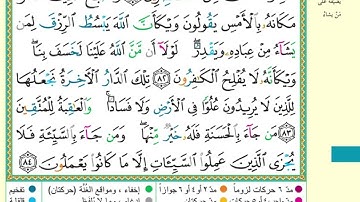 مَكَانَهُۥ بِٱلْأَمْسِ يَقُولُونَ وَيْكَأَنَّ ٱللَّهَ يَبْسُطُ ٱلرِّزْقَ لِمَن
يَشَآءُ مِنْ عِبَادِهِۦ وَيَقْدِرُ ۖ لَوْلَآ أَن مَّنَّ ٱللَّهُ عَلَيْنَا لَخَسَفَ بِنَا ۖ
وَيْكَأَنَّهُۥ لَا يُفْلِحُ ٱلْكَٰفِرُونَ ٨٢ تِلْكَ ٱلدَّارُ ٱلْءَاخِرَةُ نَجْعَلُهَا
لِلَّذِينَ لَا يُرِيدُونَ عُلُوًّا فِى ٱلْأَرْضِ وَلَا فَسَادًا ۚ وَٱلْعَٰقِبَةُ لِلْمُتَّقِينَ
٨٣ مَن جَآءَ بِٱلْحَسَنَةِ فَلَهُۥ خَيْرٌ مِّنْهَا ۖ وَمَن جَآءَ بِٱلسَّيِّئَةِ فَلَا
يُجْزَى ٱلَّذِينَ عَمِلُوا۟ ٱلسَّيِّـَٔاتِ إِلَّا مَا كَانُوا۟ يَعْمَلُونَ ٨٤
مدّ ٦ حركات لزوماً مدّ ٢ أو ٤ أو ٦ جوازاً إخفاء ، ومواقع الغُنَّة (حركتان) تفخيم
قلقلة